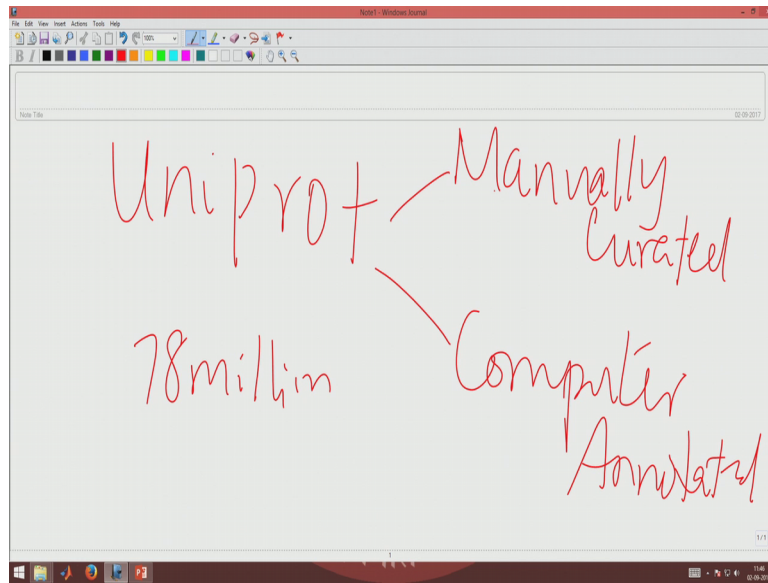 Note1 - Windows Journal
File Edit View Insert Actions Tools Help
100%
B I
Note Title
02-09-2017
Uniprot
Manually
Curated
78 million
Computer
Annotated
1/1
1
11:46